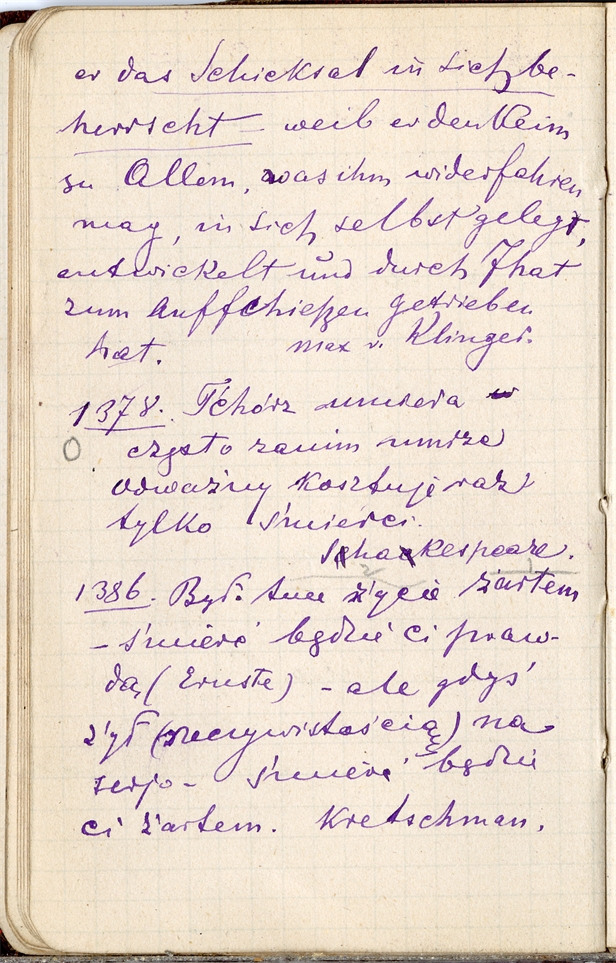 er das Schicksal in sich be-
herrscht – weil er den Keim
zu Allem, was ihm widerfahren
mag, in sich selbst gelegt,
entwickelt und durch That
zum Aufschießen getrieben
hat. Max v. Klinger.
1378. Tchórz umiera
często zanim umrze
odważny kosztuje raz
tylko śmierci.
Shakespeare.
1386. Był tu życie żartem
– śmierć będzie ci praw-
dą (Ernste) – ale gdyś
żył (rzeczywistością) na
serjo – śmierć będzie
ci żartem. Kretschman.